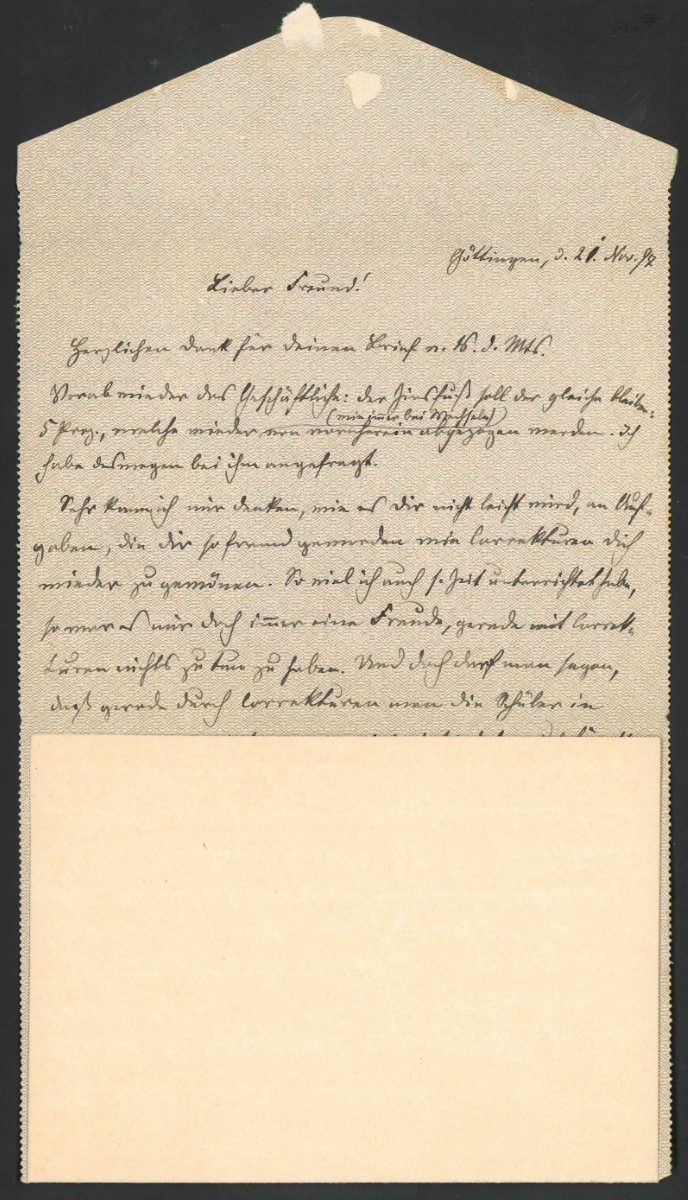 Göttingen, d. 21. Nov. 97
Lieber Freund!
Herzlichen Dank für deinen Brief v. 16. d. Mts.
Vorab wieder das Geschäftliche: der Zinsfuß soll der gleiche bleiben:
(wie immer bei Wechseln)
5 Proz., welche wieder von vornherein abgezogen werden. Ich
habe deswegen bei ihm angefragt.
Sehr kann ich mir denken, wie es dir nicht leicht wird, an Auf-
gaben, die dir so fremd geworden wie Correkturen dich
wieder zu gewönen. So viel ich auch s. Zeit unterrichtet habe,
so war es mir doch immer eine Freude, gerade mit Correk-
turen nichts zu tun zu haben. Und doch darf man sagen,
daß gerade durch Correkturen man die Schüler in